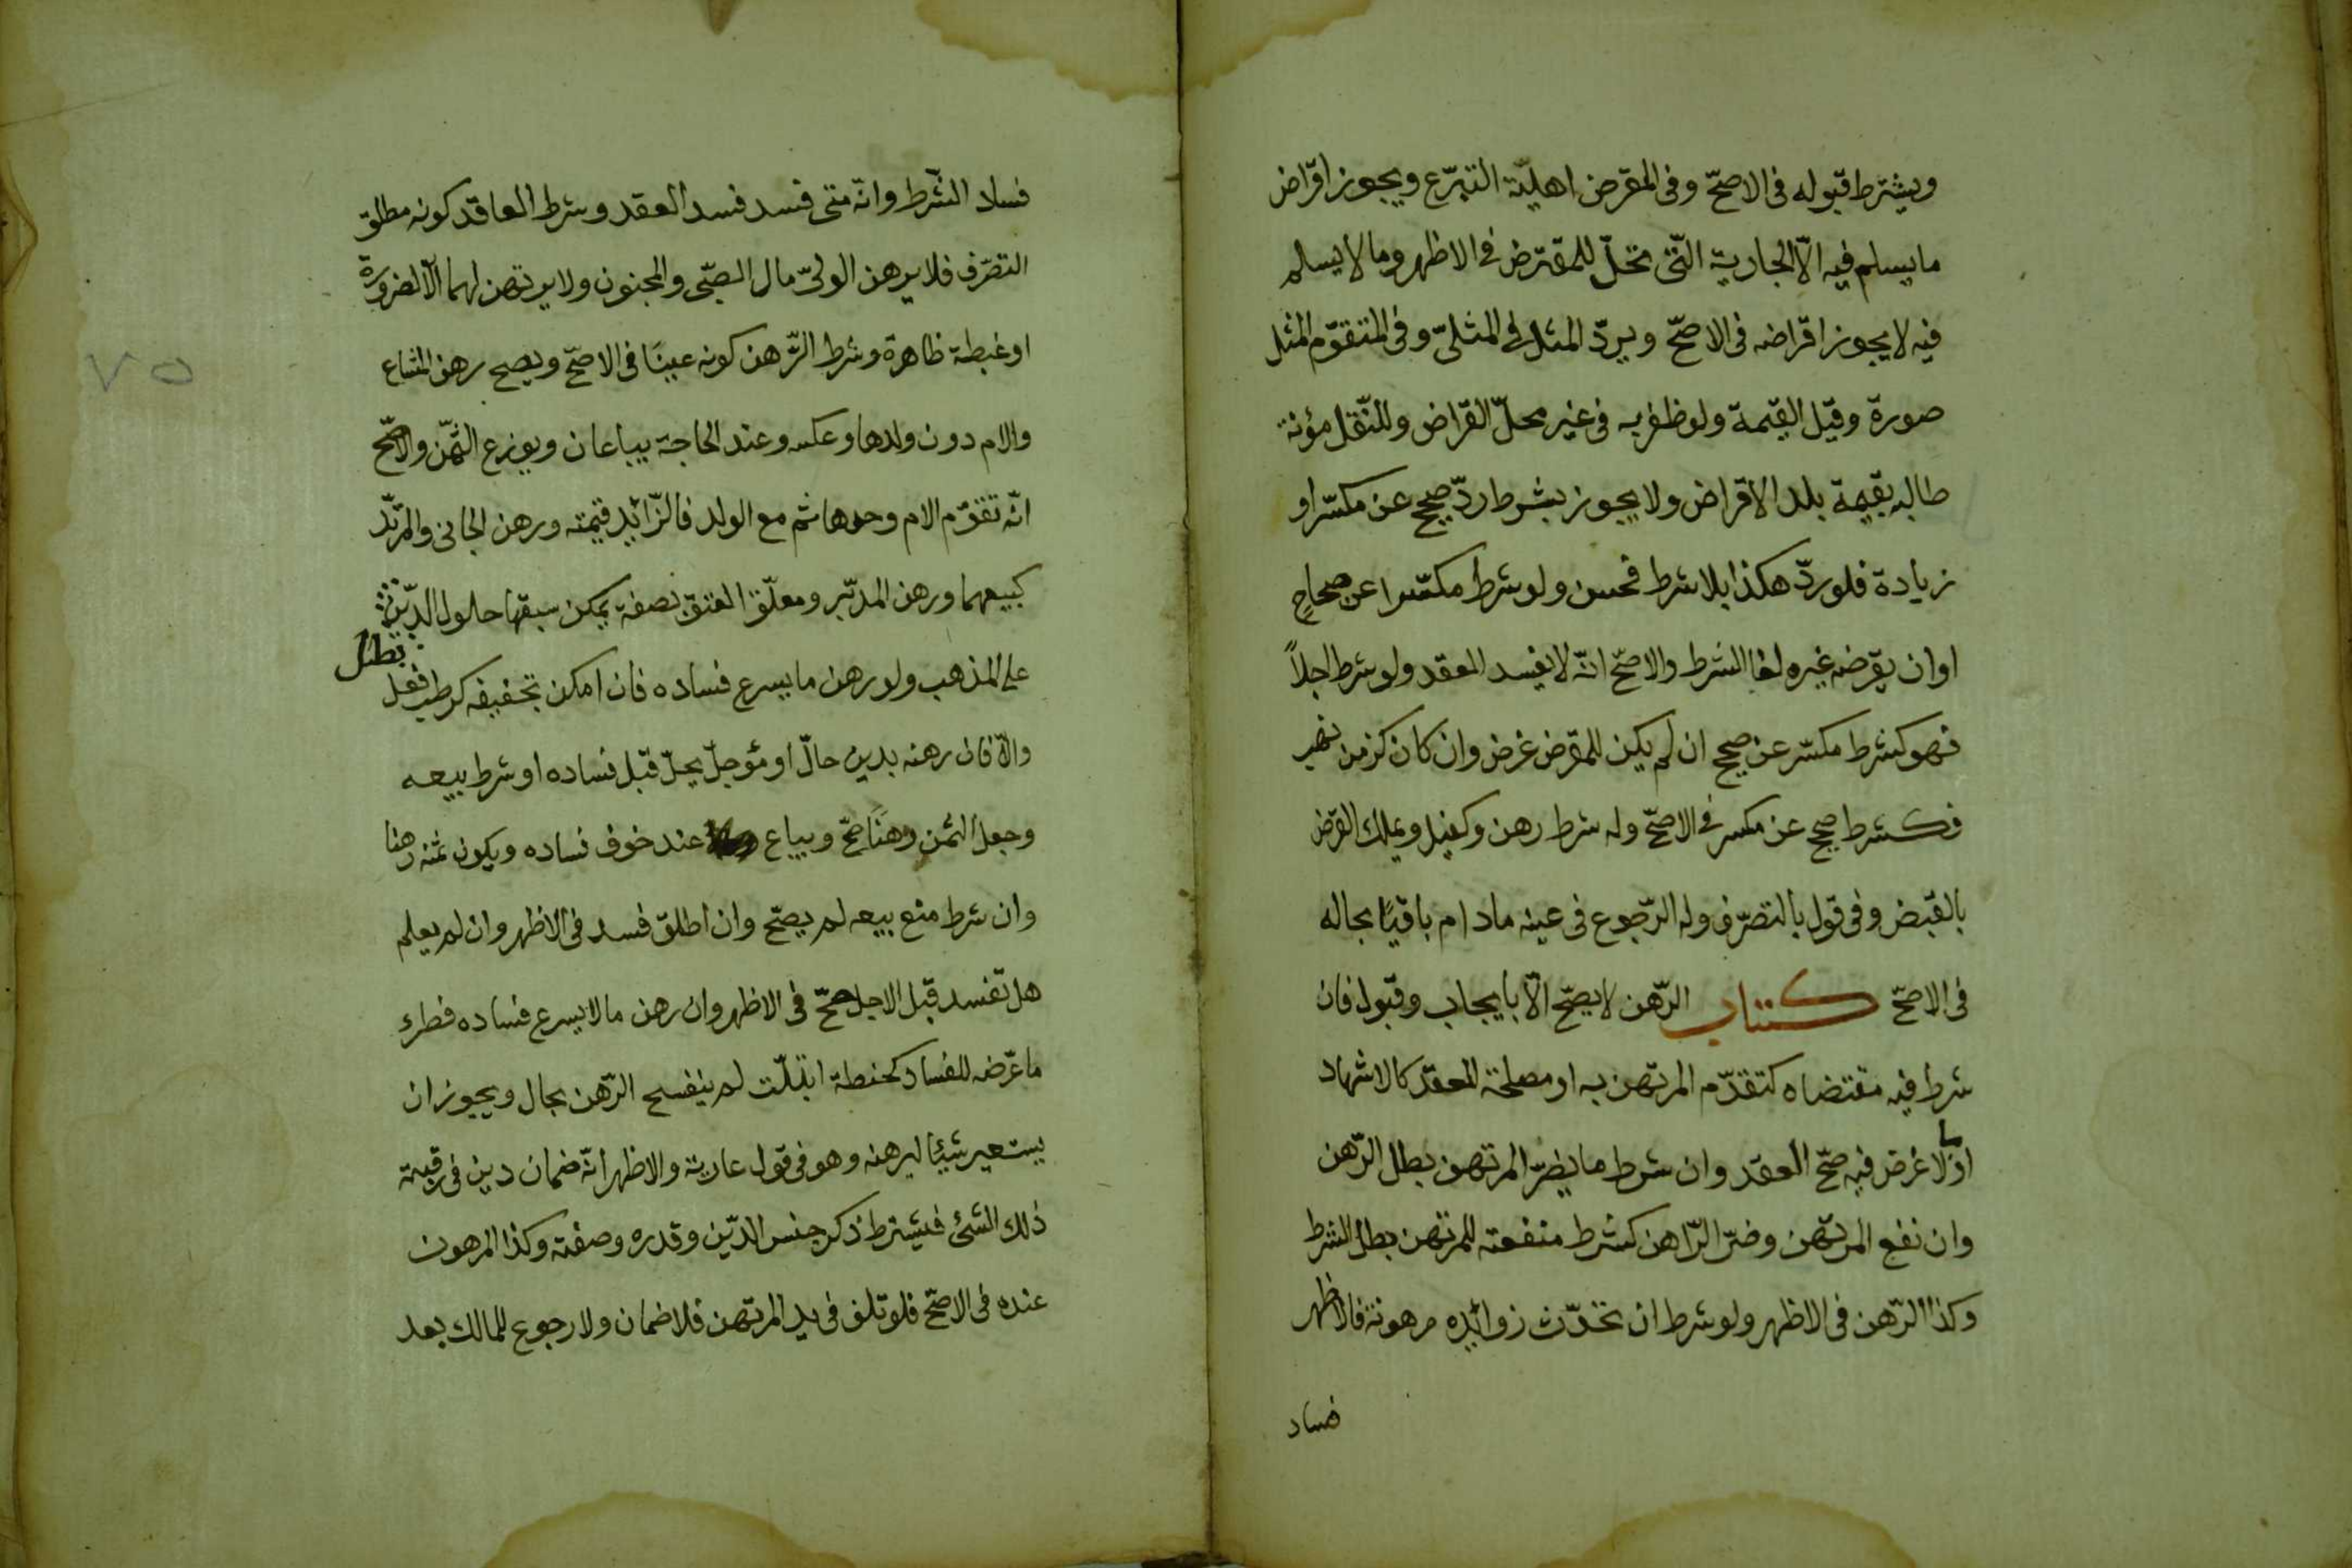 ويشترط قبوله فى الاصحّ وفى المقرض اهليّة التبرّع ويجوز اقراض
ما يسلم فيه الّا الجارية الّتى تحلّ للمقترض فى الاظهر وما لا يسلم
فيه لا يجوز اقراضه فى الاصحّ ويردّ المثل فى المثلىّ وفى المتقوّم المثل
صورة وقيل القيمة ولو ظفر به فى غير محلّ القراض وللنّقل مؤنة
طالبه بقيمة بلد الاقراض ولا يجوز بشرط ردّ صحيح عن مكسّر او
زيادة فلو ردّ هكذا بلا شرط فحسن ولو شرط مكسّرا عن صحاح
او ان يقرضه غيره لغا الشرط والاصحّ انّه لا يفسد العقد ولو شرط اجلاً
فهو كشرط مكسّر عن صحيح ان لم يكن للمقرض غرض وان كان كزمن نهب
فكشرط صحيح عن مكسر فى الاصحّ وله شرط رهن وكفيل ويملك القرض
بالقبض وفى قول بالتصرّف وله الرّجوع فى عينه مادام باقيًا بحاله
فى الاصحّ كتاب الرّهن لا يصحّ الّا بايجاب وقبول فان
شرط فيه مقتضاه كتقدّم المرتهن به او مصلحة للعقد كالاشهاد
او ما لا غرض فيه صحّ العقد وان شرط ما يضرّ المرتهن بطل الرّهن
وان نفع المرتهن وضرّ الرّاهن كشرط منفعته للمرتهن بطل الشرط
وكذا الرّهن فى الاظهر ولو شرط ان تحدّث زوائده مرهونة فالاظهر
فساد
فساد الشّرط وانّه متى فسد فسد العقد وشرط العاقد كونه مطلق
التصرّف فلا يرهن الولىّ مال الصّبى والمجنون ولا يرتهن لهما الّا لضرورة
او غبطة ظاهرة وشرط الرّهن كونه عينًا فى الاصحّ ويصح رهن المشاع
والام دون ولدها وعكسه وعند الحاجة يباعان ويوزع الثّمن والاصحّ
انّه تقوّم الام وحدها ثم مع الولد فالزّائد قيمته ورهن الجانى والمرتّد
كبيعهما ورهن المدبّر ومعلّق العتق بصفة يمكن سبقها حلول الدّين
بطل
على المذهب ولو رهن ما يسرع فساده فان امكن تجفيفه كرطب فعل
والّا فان رهنه بدين حالّ او مؤجلّ يحلّ قبل فساده او شرط بيعه
وجعل الثمن رهنًا صحّ ويباع عند خوف فساده ويكون ثمنه رهنا
وان شرط منع بيعه لم يصحّ وان اطلق فسد فى الاظهر وان لم يعلم
هل تفسد قبل الاجل صحّ فى الاظهر وان رهن ما لا يسرع فساده فطرء
ما عرّضه للفساد كحنطة ابتلّت لم ينفسح الرّهن بحال ويجوز ان
يستعير شيئا ليرهنه وهو فى قول عارية والاظهر انّه ضمان دين فى رقبة
ذلك الشئ فيشترط ذكر جنس الدّين وقدره وصفته وكذا المرهون
عنده فى الاصحّ فلو تلف فى يد المرتهن فلا ضمان ولا رجوع للمالك بعد
٧٥